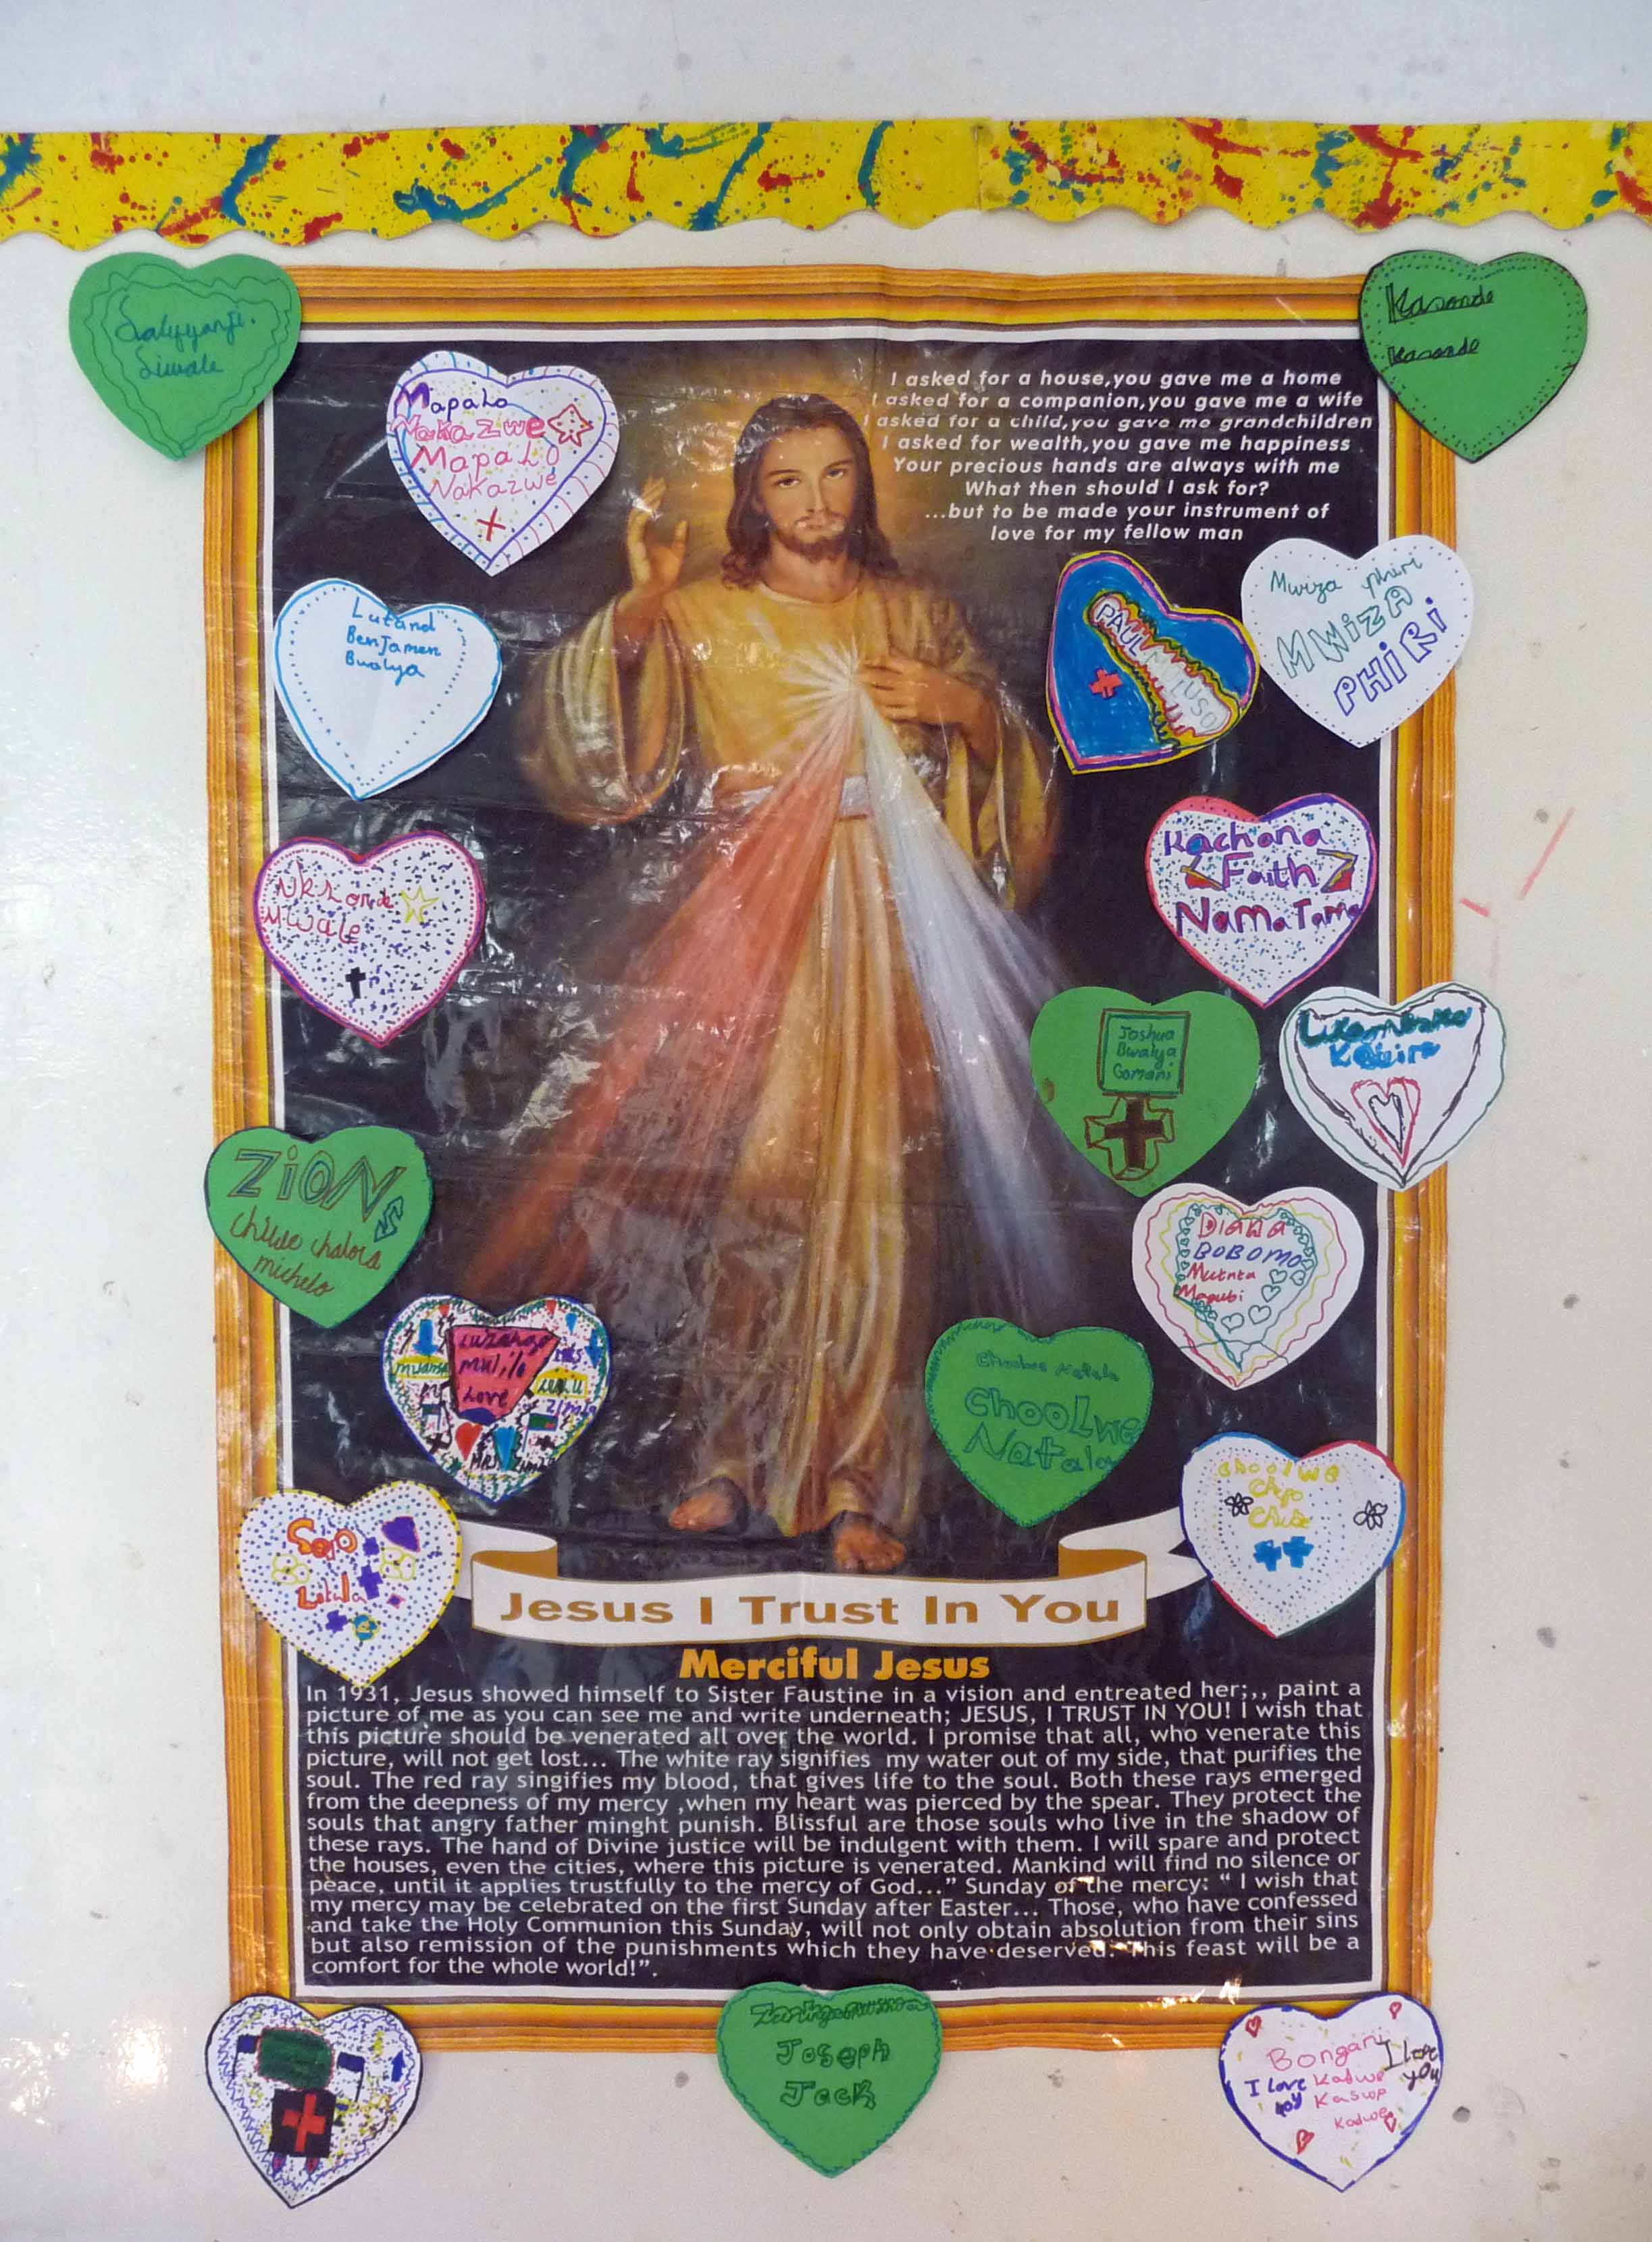 Kasonde
Kasonde
Mapalo
Nakazwe
Mapalo
Nakazwe
I asked for a house,you gave me a home
I asked for a companion,you gave me a wife
I asked for a child,you gave me grandchildren
I asked for wealth,you gave me happiness
Your precious hands are always with me
What then should I ask for?
...but to be made your instrument of
love for my fellow man
Lutand
Benjamen
Bwalya
PAUL
Mwiza phiri
MWiZA
PHiRi
Mwale
Kachana
Faith
Joshua
Bwalya
Gomani
ZiON
DIANA
BOBOMO
Love
Choolwe
Natala
choolwe
Jesus I Trust In You
Merciful Jesus
In 1931, Jesus showed himself to Sister Faustine in a vision and entreated her;,, paint a
picture of me as you can see me and write underneath; JESUS, I TRUST IN YOU! I wish that
this picture should be venerated all over the world. I promise that all, who venerate this
picture, will not get lost... The white ray signifies my water out of my side, that purifies the
soul. The red ray singifies my blood, that gives life to the soul. Both these rays emerged
from the deepness of my mercy ,when my heart was pierced by the spear. They protect the
souls that angry father minght punish. Blissful are those souls who live in the shadow of
these rays. The hand of Divine justice will be indulgent with them. I will spare and protect
the houses, even the cities, where this picture is venerated. Mankind will find no silence or
peace, until it applies trustfully to the mercy of God..." Sunday of the mercy: “ I wish that
my mercy may be celebrated on the first Sunday after Easter... Those, who have confessed
and take the Holy Communion this Sunday, will not only obtain absolution from their sins
but also remission of the punishments which they have deserved. This feast will be a
comfort for the whole world!”.
Joseph
Jack
Bongani
I love
you
I love Kadwe
Kadwe